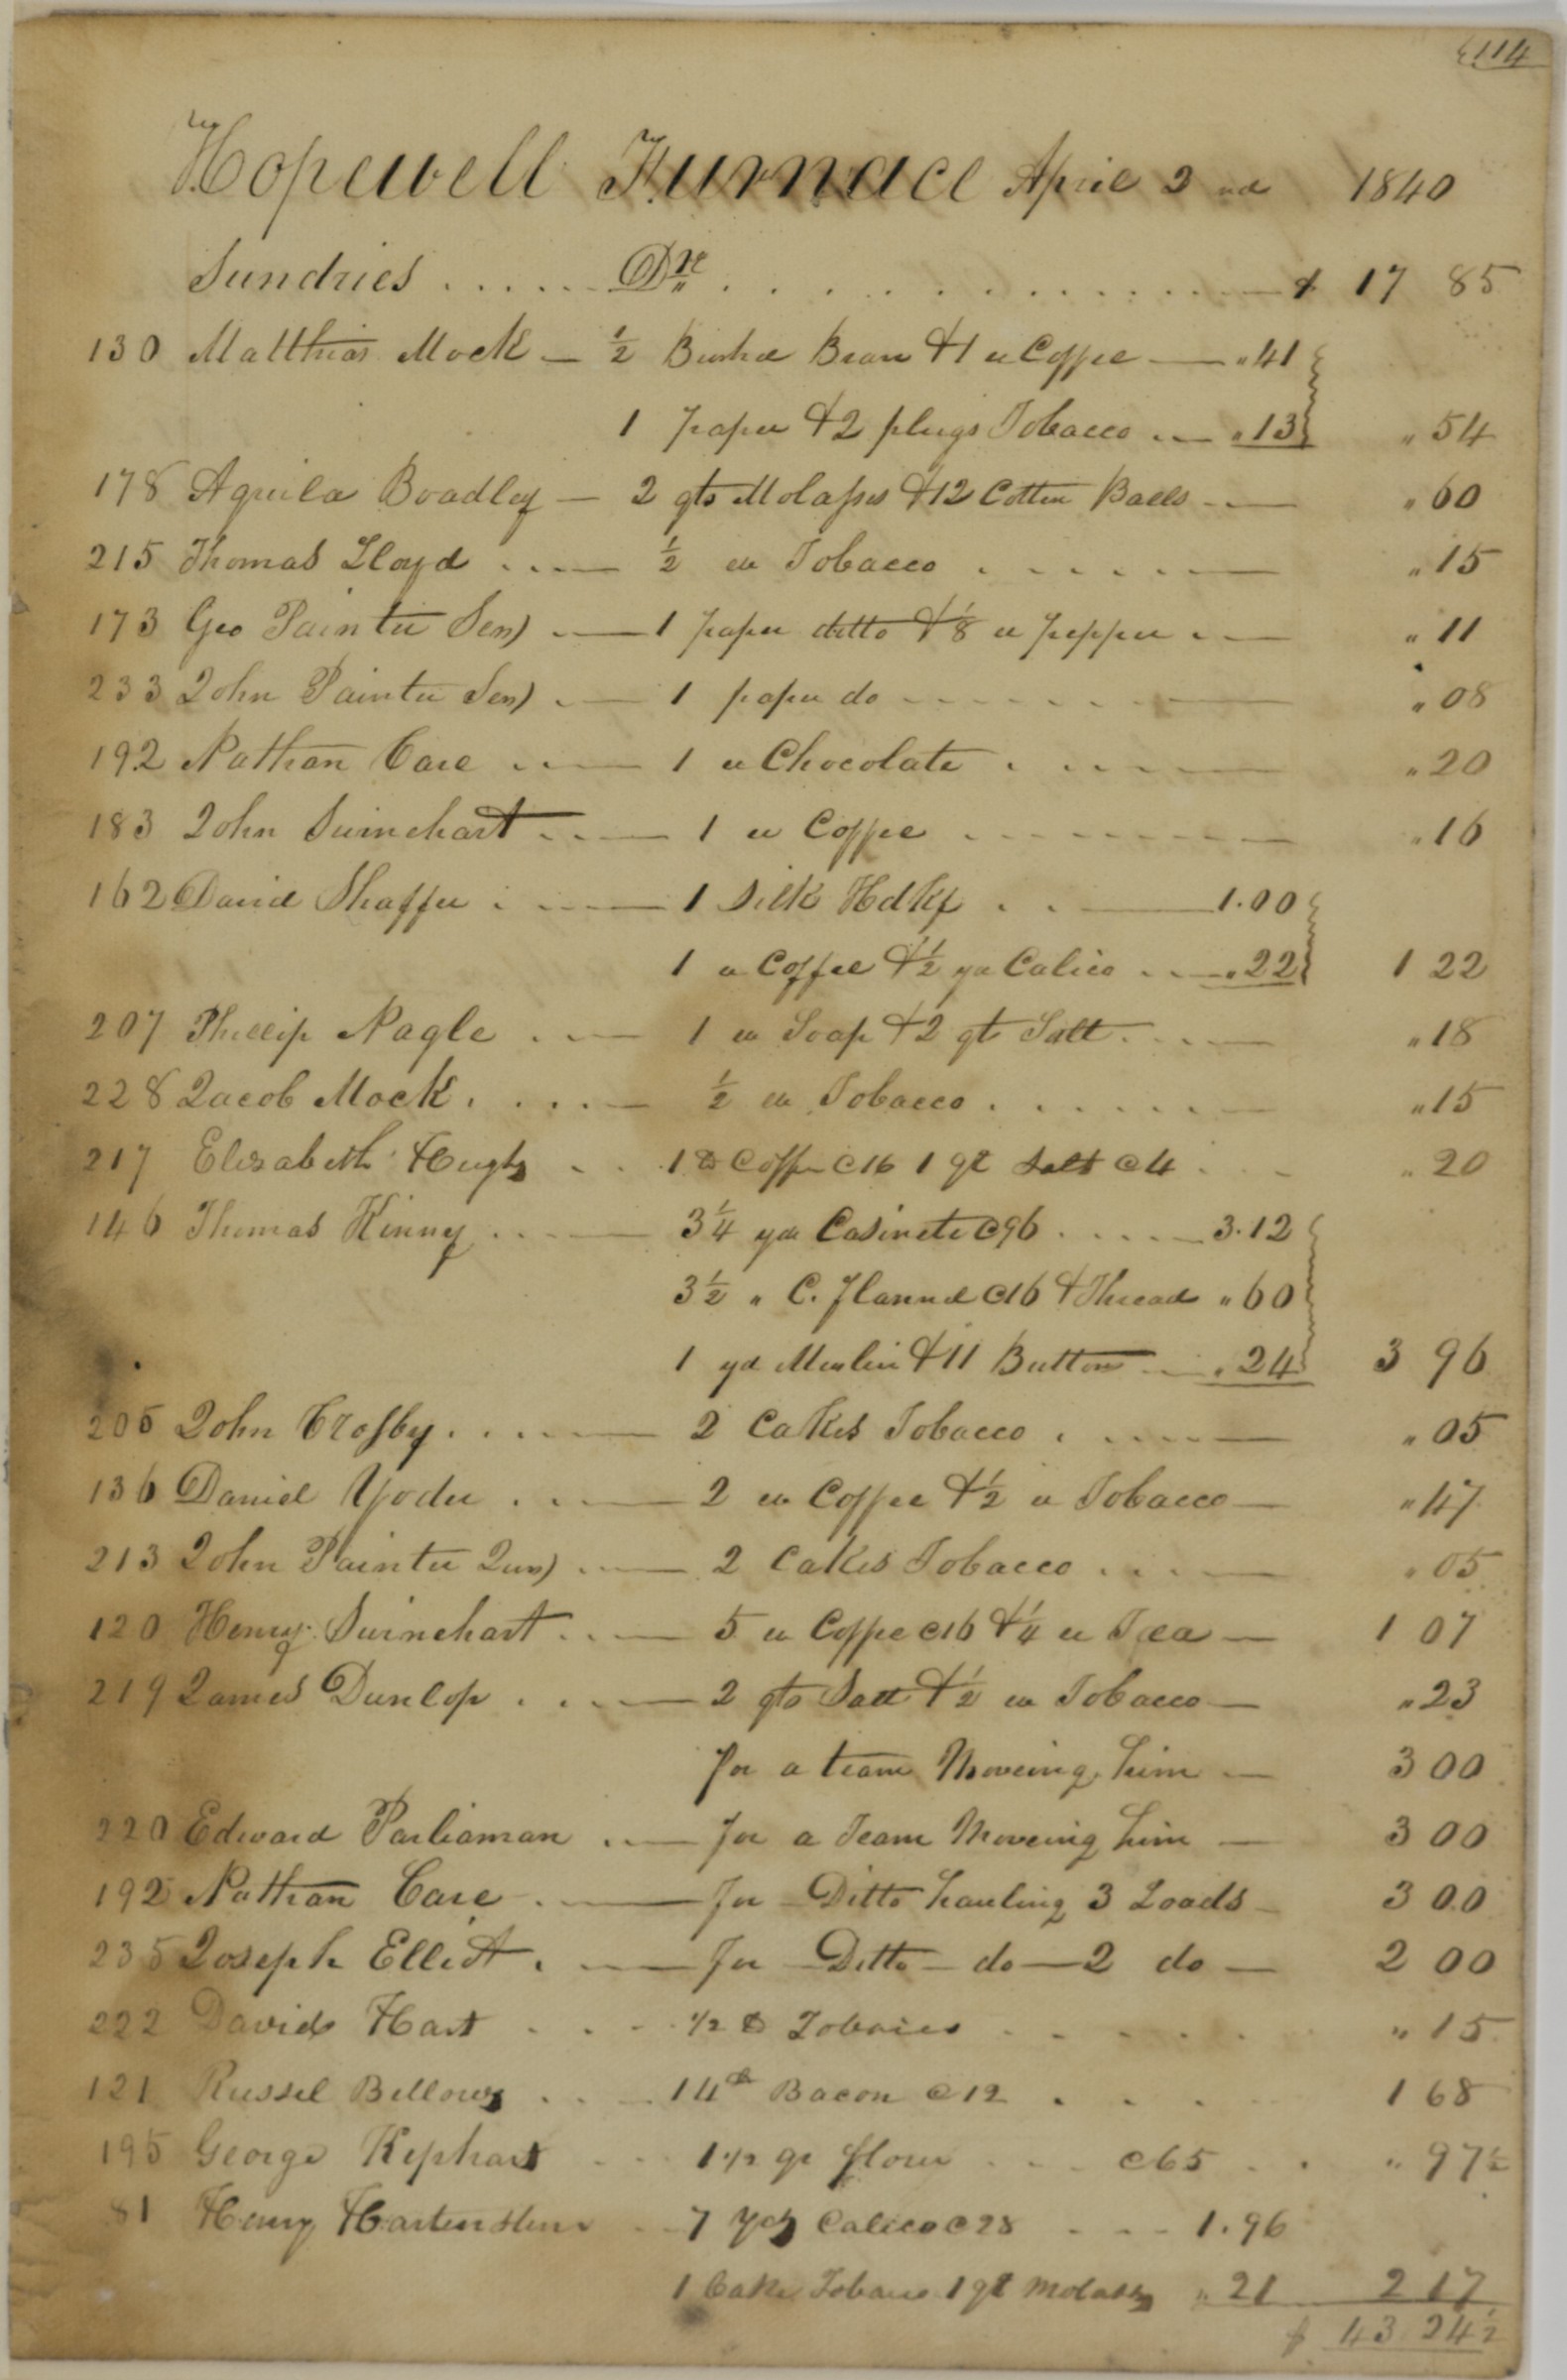 114
Hopewell Furnace April 2nd 1840
Sundries ..... Dr. $ 17 85
130 Matthias Mock — ½ Bushel Bran & 1 lb Coffee — "41
1 paper & 2 plugs Tobacco .. — "13 "54
178 Aquila Boadley — 2 qts Molasses & 12 Cotten Balls — "60
215 Thomas Lloyd .... — ½ lb Tobacco "15
173 Geo Painter Senr — 1 paper ditto & ⅛ lb pepper — "11
233 John Painter Senr — 1 paper do "08
192 Nathan Care — 1 lb Chocolate "20
183 John Swinehart — 1 lb Coffee "16
162 David Shaffer — 1 Silk Hdkf — 1.00
1 lb Coffee & ½ yd Calico — "22 1 22
207 Phillip Nagle — 1 lb Soap & 2 qts Salt "18
228 Jacob Mock — ½ lb Tobacco "15
217 Elizabeth Hughs — 1 lb Coffee @16 1 qt Salt @4 "20
146 Thomas Kinney — 3¼ yds Casinete @96 3.12
3½ " C. Flannel @16 & Thread "60
1 yd Muslin & 11 Buttons "24 3 96
205 John Crosby — 2 Cakes Tobacco "05
136 Daniel Yoder — 2 lb Coffee & ½ lb Tobacco — "47
213 John Painter Junr — 2 Cakes Tobacco "05
120 Henry Swinehart — 5 lb Coffee @16 & ¼ lb Tea — 1 07
219 James Dunlop — 2 qts Salt & ½ lb Tobacco — "23
for a team Moveing him — 3 00
220 Edward Parliaman — for a Team Moveing him — 3 00
192 Nathan Care — for Ditto hauling 3 Loads 3 00
235 Joseph Elliot — for Ditto — do — 2 do — 2 00
222 David Hart ½ lb Tobacco "15
121 Russel Bellows 14 lb Bacon @12 1 68
195 George Kephart 1 1/2 qr flour @65 "97½
81 Henry Hartenstine 7 Yds Calico @28 1.96
1 Cake Tobacco 1 qt Molasses "21 2 17
$ 43 24½